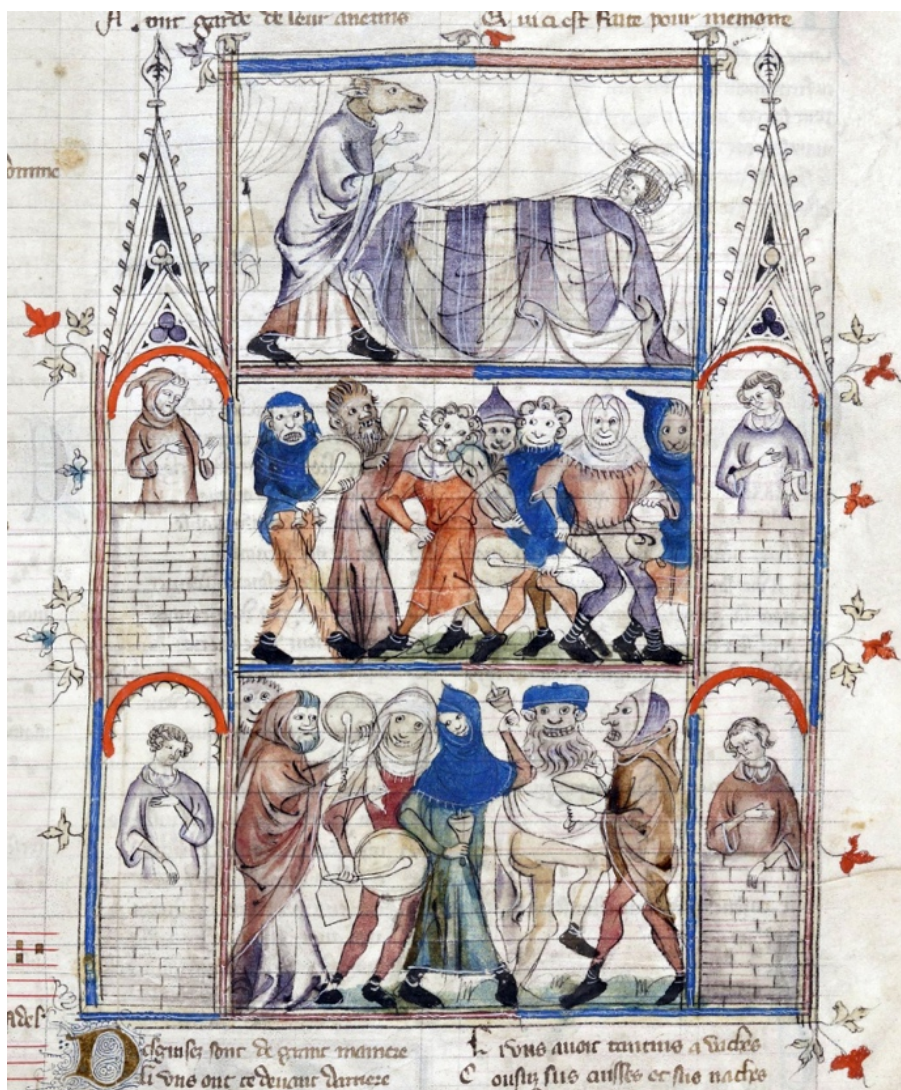 ont garde de leur anemis
ci est faite pour memoire
Desguisez sont de grant maniere
Li uns ont ce devant darriere
L i uns avoit tantins a vaches
C ousuz sus cuisses et sus naches